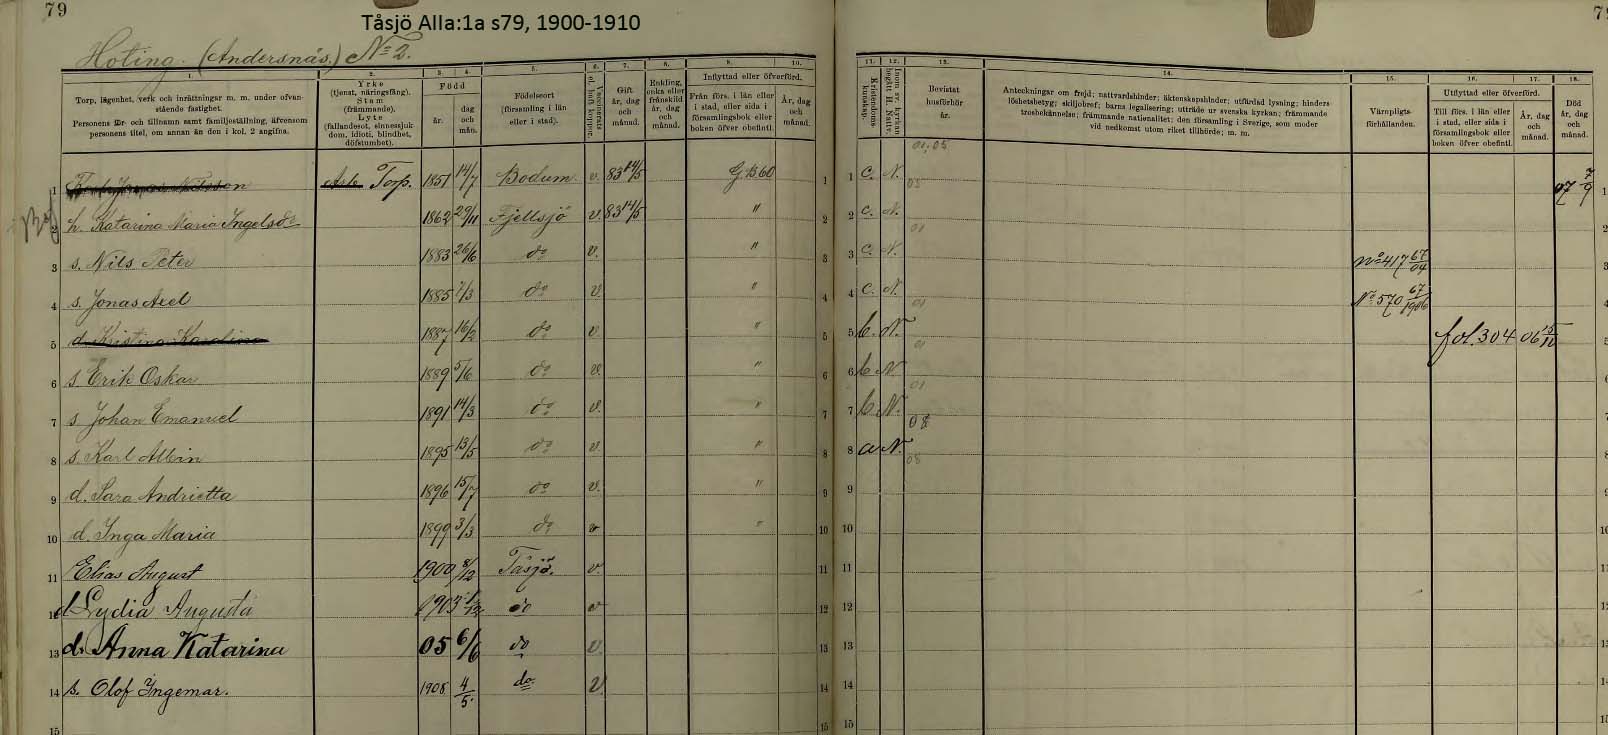 79
Tåsjö Alla:1a s79, 1900-1910
79
Hoting. (Andersnäs.) No 2.
1.
Torp, lägenhet, verk och inrättningar m. m. under ofvan-
stående fastighet.
Personens för- och tillnamn samt familjeställning, äfvensom
personens titel, om annan än den i kol. 2 angifna.
2.
Yrke
(tjenst, näringsfång).
Stam
(främmande).
Lyte
(fallandesot, sinnessjuk
dom, idioti, blindhet,
döfstumhet).
3. 4.
Född
år.
dag
och
mån.
5.
Födelseort
(församling i län
eller i stad).
6.
7.
Gift
år, dag
och
månad.
8.
Enkling,
enka eller
frånskild
år, dag
och
månad.
9. 10.
Inflyttad eller öfverförd.
Från förs. i län eller
i stad, eller sida i
församlingsbok eller
boken öfver obefintl.
År, dag
och
månad.
11.
Kristendoms
kunskap.
12.
13.
Bevistat
husförhör
år.
14.
Anteckningar om frejd; nattvardshinder; äktenskapshinder; utfärdad lysning; hinders
löshetsbetyg; skiljobref; barns legalisering; utträde ur svenska kyrkan; främmande
trosbekännelse; främmande nationalitet; den församling i Sverige, som moder
vid nedkomst utom riket tillhörde; m. m.
15.
Värnpligts-
förhållanden.
16. 17.
Utflyttad eller öfverförd.
Till förs. i län eller
i stad, eller sida i
församlingsbok eller
boken öfver obefintl.
År, dag
och
månad.
18.
Död
år, dag
och
månad.
01, 05
1 Torp. 1851 14/7 Bodum v. 83 14/5 G.B.60 1 1 C. N. 05 07 7/9 1
2 h. Katarina Maria Ingelsdr 1862 29/11 Fjellsjö v. 83 14/5 " 2 2 C. N. 01 2
3 s. Nils Peter 1883 26/6 do v. " 3 3 C. N. No 417 67/04 3
4 s. Jonas Axel 1885 7/3 do v. " 4 4 C. N. 01 No 570 67/1906 4
5 d. Kristina Karolina 1887 16/2 do v " 5 5 b. N. 01 fol. 304 06 15/10 5
6 s. Erik Oskar 1889 5/6 do v. " 6 6 b N. 01
7 s Johan Emanuel 1891 14/3 do v. " 7 7 b N. 08
8 s. Karl Albin 1895 13/5 do v. " 8 8 a N. 08
9 d. Sara Andrietta 1896 15/7 do v. " 9 9
10 d. Inga Maria 1899 3/3 do v " 10 10
11 Elias August 1900 8/12 Tåsjö. v. 11 11
12 d Lydia Augusta 1903 do v 12 12
13 d. Anna Katarina 05 6/6 do v. 13 13
14 s. Olof Ingemar. 1908 4/5. do V 14 14
15 15 15